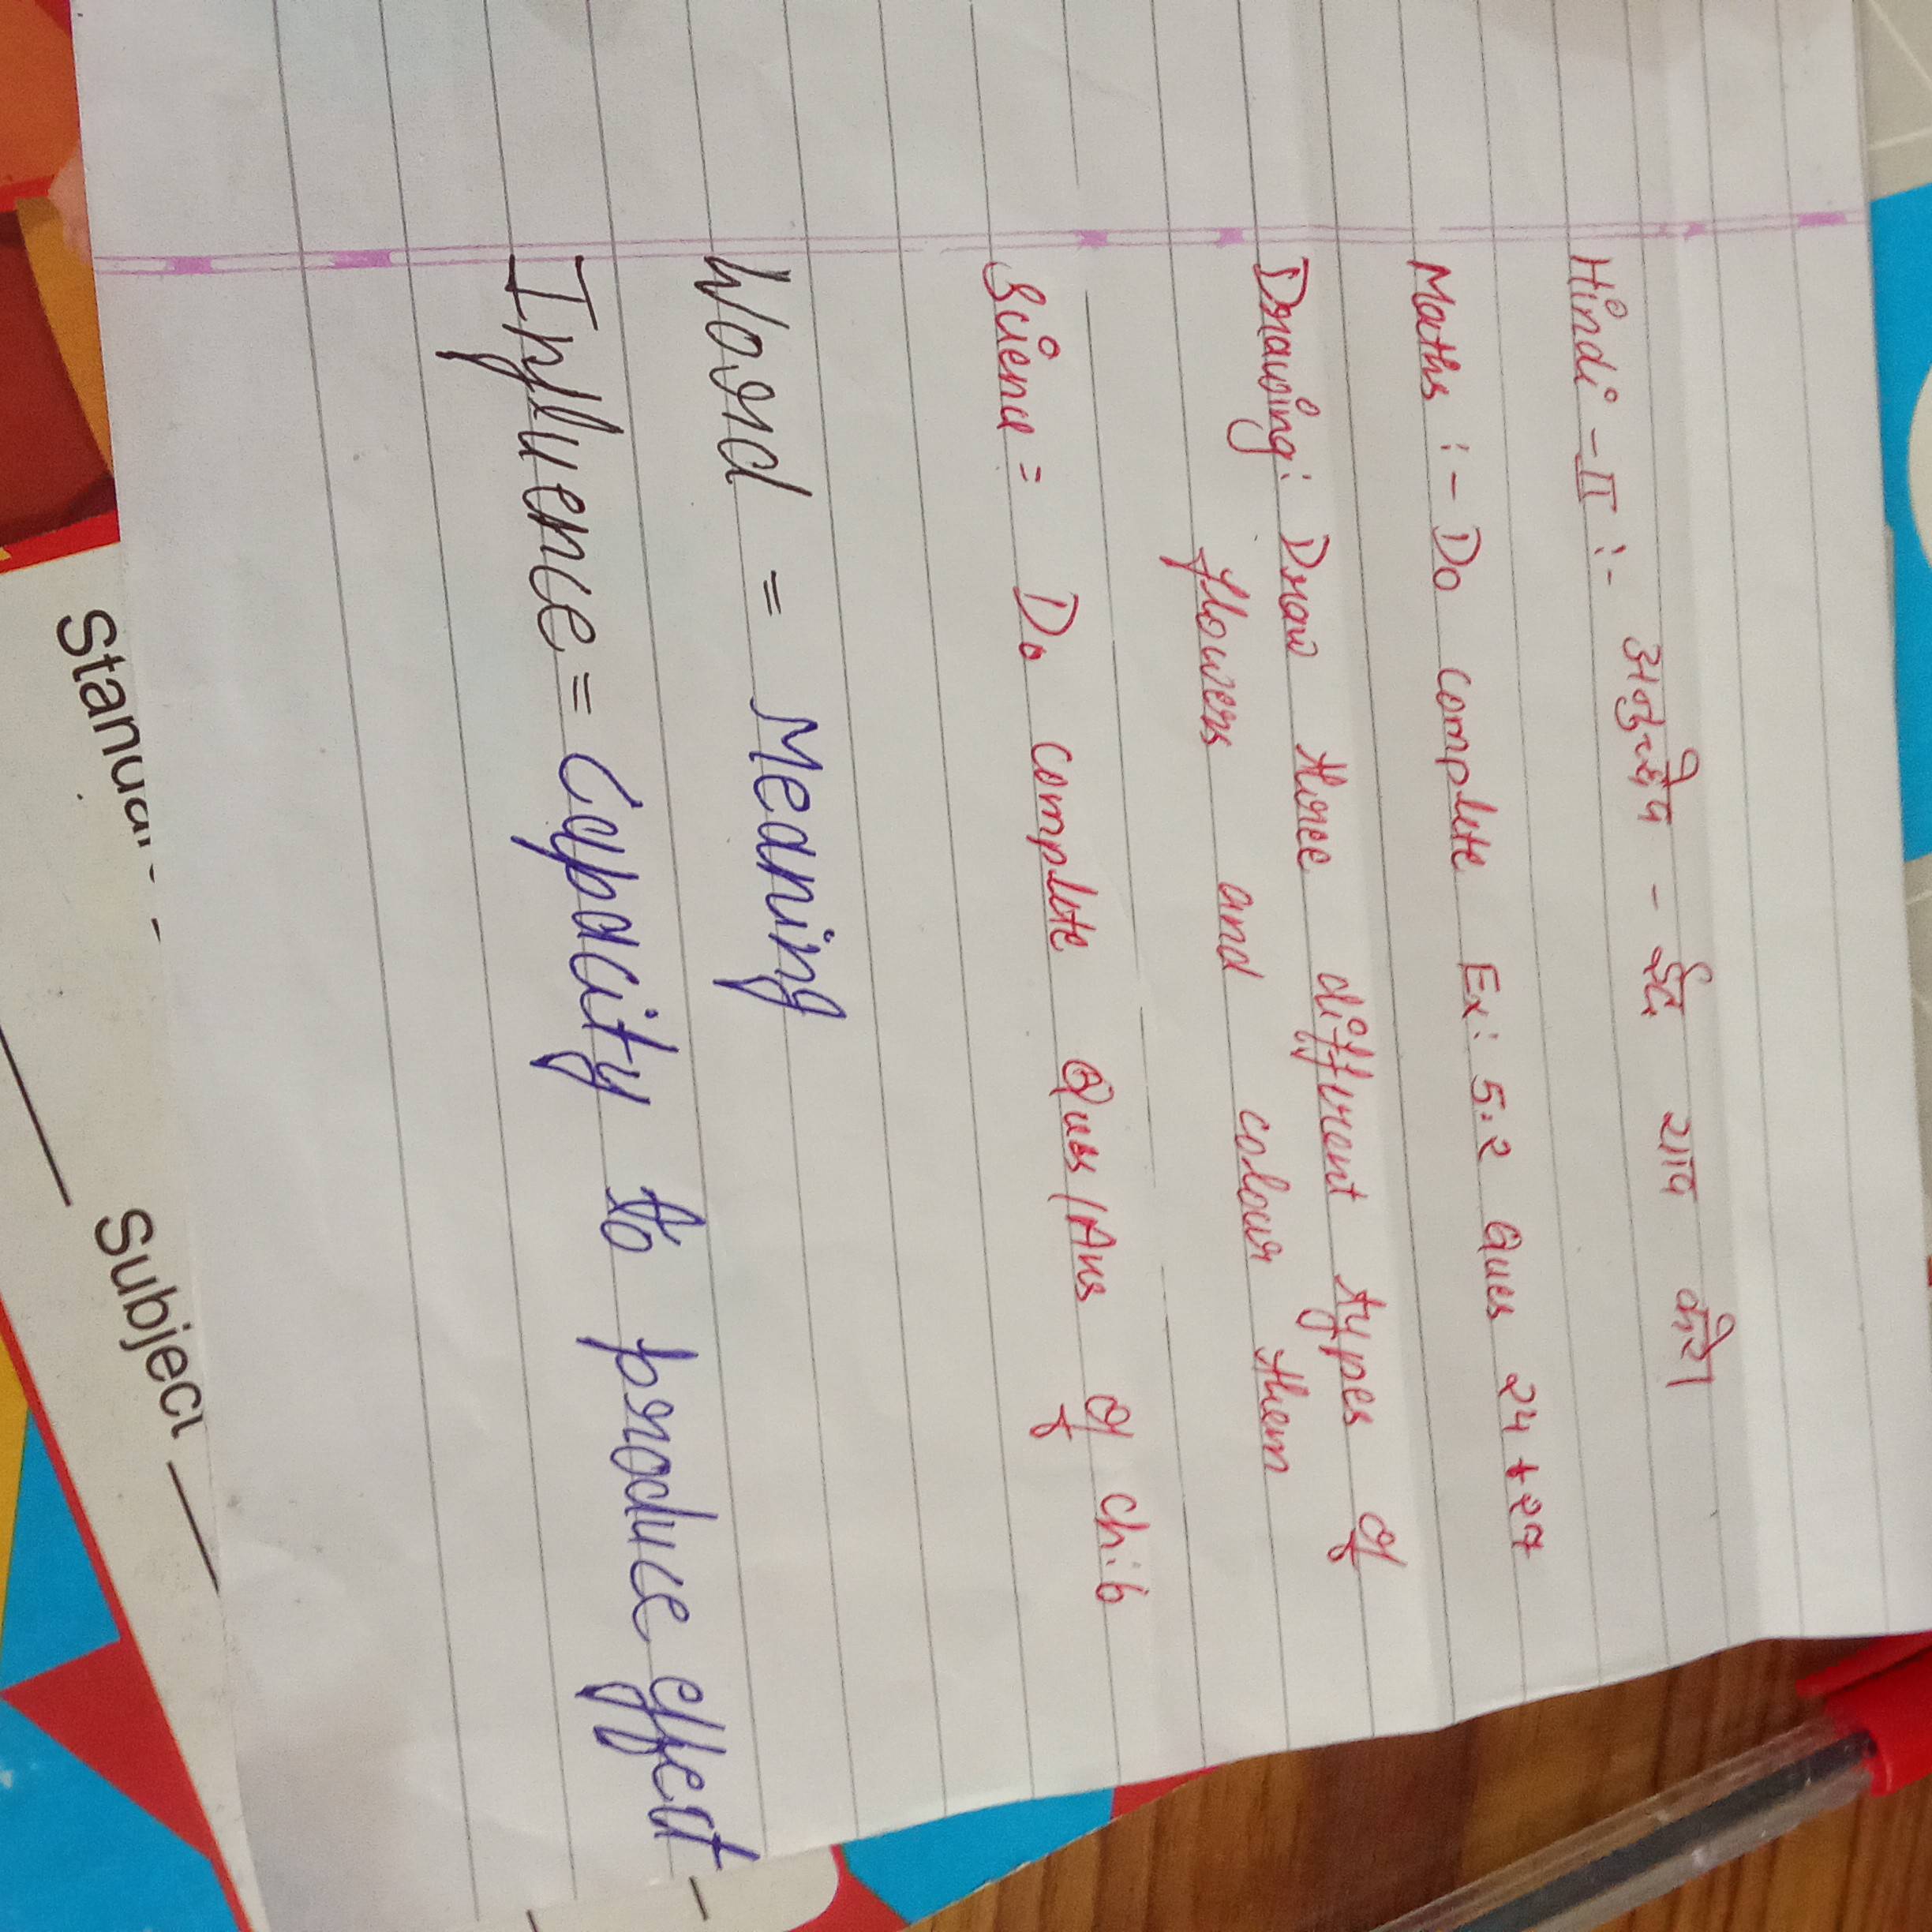 Hindi - II :- अनुच्छेद - ईद याद करो
Maths :- Do complete Ex: 5.2 Ques 24 + 27
Drawing: Draw three different types of
flowers and colour them
Science = Do complete Ques/Ans of ch.6
Word = Meaning
Influence = Cypacity to produce effect-
Subject